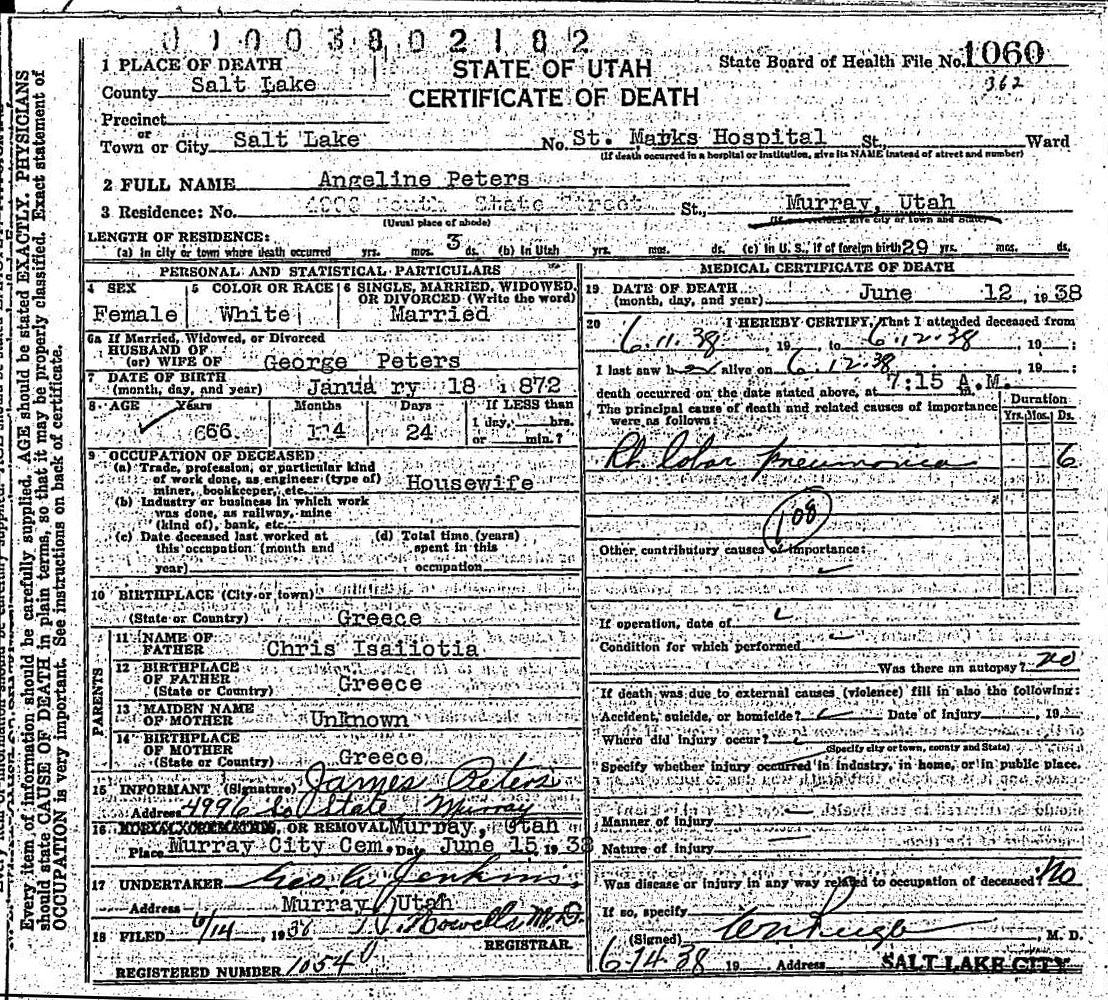 0 1 0 0 3 8 0 2 1 8 2
1 PLACE OF DEATH
County Salt Lake
STATE OF UTAH
CERTIFICATE OF DEATH
State Board of Health File No. 1060
362
Precinct
or
Town or City Salt Lake No. St. Marks Hospital St., Ward
(If death occurred in a hospital or institution, give its NAME instead of street and number)
2 FULL NAME Angeline Peters
3 Residence: No. South State Street St., Murray, Utah
(Usual place of abode)
LENGTH OF RESIDENCE:
(a) In city or town where death occurred yrs. mos. 3 ds. (b) In Utah yrs. mos. ds. (c) In U. S., if of foreign birth 29 yrs. mos. ds.
PERSONAL AND STATISTICAL PARTICULARS
4 SEX Female
5 COLOR OR RACE White
6 SINGLE, MARRIED, WIDOWED, OR DIVORCED (Write the word)
Married
6a If Married, Widowed, or Divorced
HUSBAND OF
(or) WIFE OF George Peters
7 DATE OF BIRTH
(month, day, and year) Janua ry 18 1872
8 AGE Years 66 Months 4 Days 24 If LESS than
1 day, hrs.
or min.?
9 OCCUPATION OF DECEASED
(a) Trade, profession, or particular kind
of work done, as engineer (type of)
miner, bookkeeper, etc. Housewife
(b) Industry or business in which work
was done, as railway, mine
(kind of), bank, etc.
(c) Date deceased last worked at
this occupation (month and
year)
(d) Total time (years)
spent in this
occupation
10 BIRTHPLACE (City or town)
(State or Country) Greece
PARENTS
11 NAME OF
FATHER Chris Isaiiotia
12 BIRTHPLACE
OF FATHER
(State or Country) Greece
13 MAIDEN NAME
OF MOTHER Unknown
14 BIRTHPLACE
OF MOTHER
(State or Country) Greece
15 INFORMANT (Signature) James Peters
Address 4996 So State Murray
16 OR REMOVAL Murray, Utah
Place Murray City Cem. Date June 15, 1938
17 UNDERTAKER Geo. A Jenkins.
Address Murray, Utah
18 FILED 6/14, 1938 Howells M.D.
REGISTRAR.
REGISTERED NUMBER 1054
MEDICAL CERTIFICATE OF DEATH
19 DATE OF DEATH
(month, day, and year) June 12, 1938
20 I HEREBY CERTIFY, That I attended deceased from
6.11.38, 19 to 6.12.38, 19 ;
I last saw h er alive on 6.12.38, 19 ;
death occurred on the date stated above, at 7:15 A.M.
The principal cause of death and related causes of importance
were as follows:
Duration
Yrs. Mos. Ds.
Rt. lobar pneumonia 6
108
Other contributory causes of importance:
If operation, date of
Condition for which performed
Was there an autopsy? no
If death was due to external causes (violence) fill in also the following:
Accident, suicide, or homicide? Date of injury , 19
Where did injury occur?
(Specify city or town, county and State)
Specify whether injury occurred in industry, in home, or in public place.
Manner of injury
Nature of injury
Was disease or injury in any way related to occupation of deceased? No
If so, specify
(Signed) M. D.
6-14-38 19 Address SALT LAKE CITY
Every item of information should be carefully supplied. AGE should be stated EXACTLY. PHYSICIANS
should state CAUSE OF DEATH in plain terms, so that it may be properly classified. Exact statement of
OCCUPATION is very important. See instructions on back of certificate.